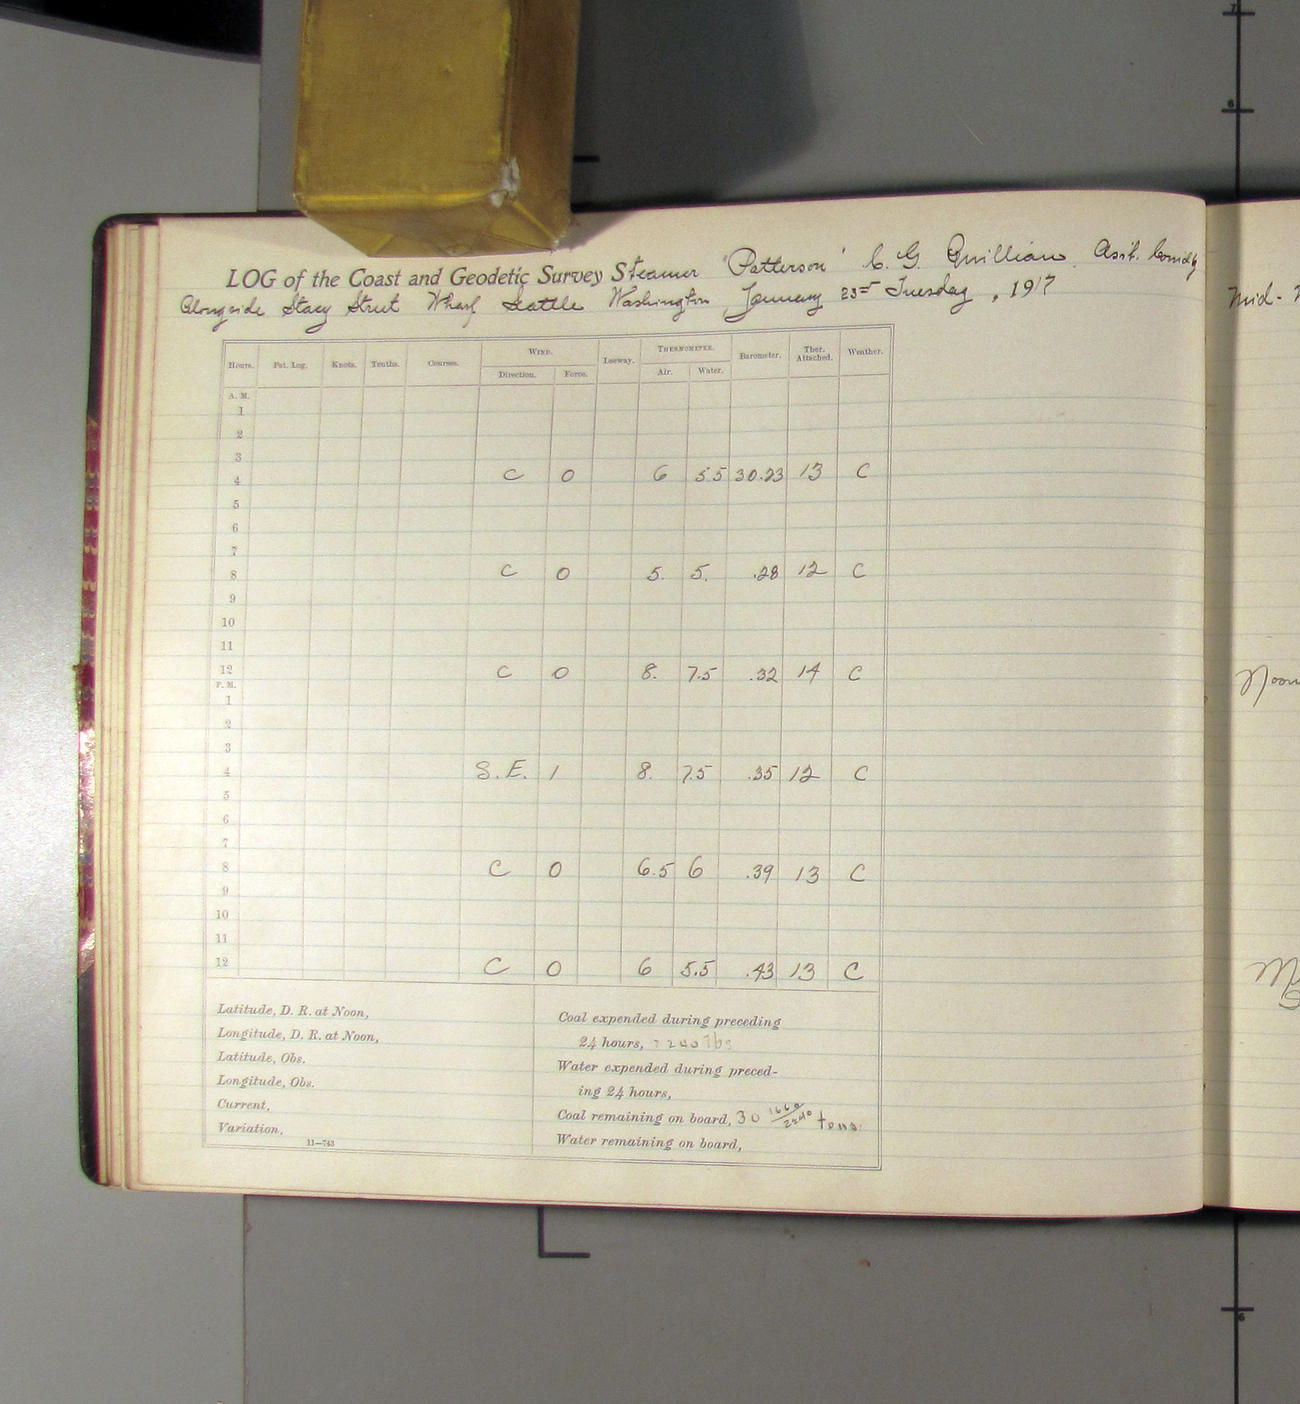 LOG of the Coast and Geodetic Survey Steamer "Patterson" C. G. Quillian. Asst. Comdg
Alongside Stacy Street Wharf Seattle Washington January 23rd Tuesday, 1917
Hours. Pat. Log. Knots. Tenths. Courses. WIND. Leeway. THERMOMETER. Barometer. Ther. Attached. Weather.
Direction. Force. Air. Water.
A. M.
1
2
3
4 C 0 6 5.5 30.23 13 C
5
6
7
8 C 0 5. 5. .28 12 C
9
10
11
12 C 0 8. 7.5 .32 14 C
P. M.
1
2
3
4 S. E. 1 8. 7.5 .35 12 C
5
6
7
8 C 0 6.5 6 .39 13 C
9
10
11
12 C 0 6 5.5 .43 13 C
Latitude, D. R. at Noon,
Longitude, D. R. at Noon,
Latitude, Obs.
Longitude, Obs.
Current,
Variation,
11—743
Coal expended during preceding
24 hours, 2240 lbs
Water expended during preced-
ing 24 hours,
Coal remaining on board, 30 1660/2240 tons.
Water remaining on board,
Mid-
Noon
7
6
6